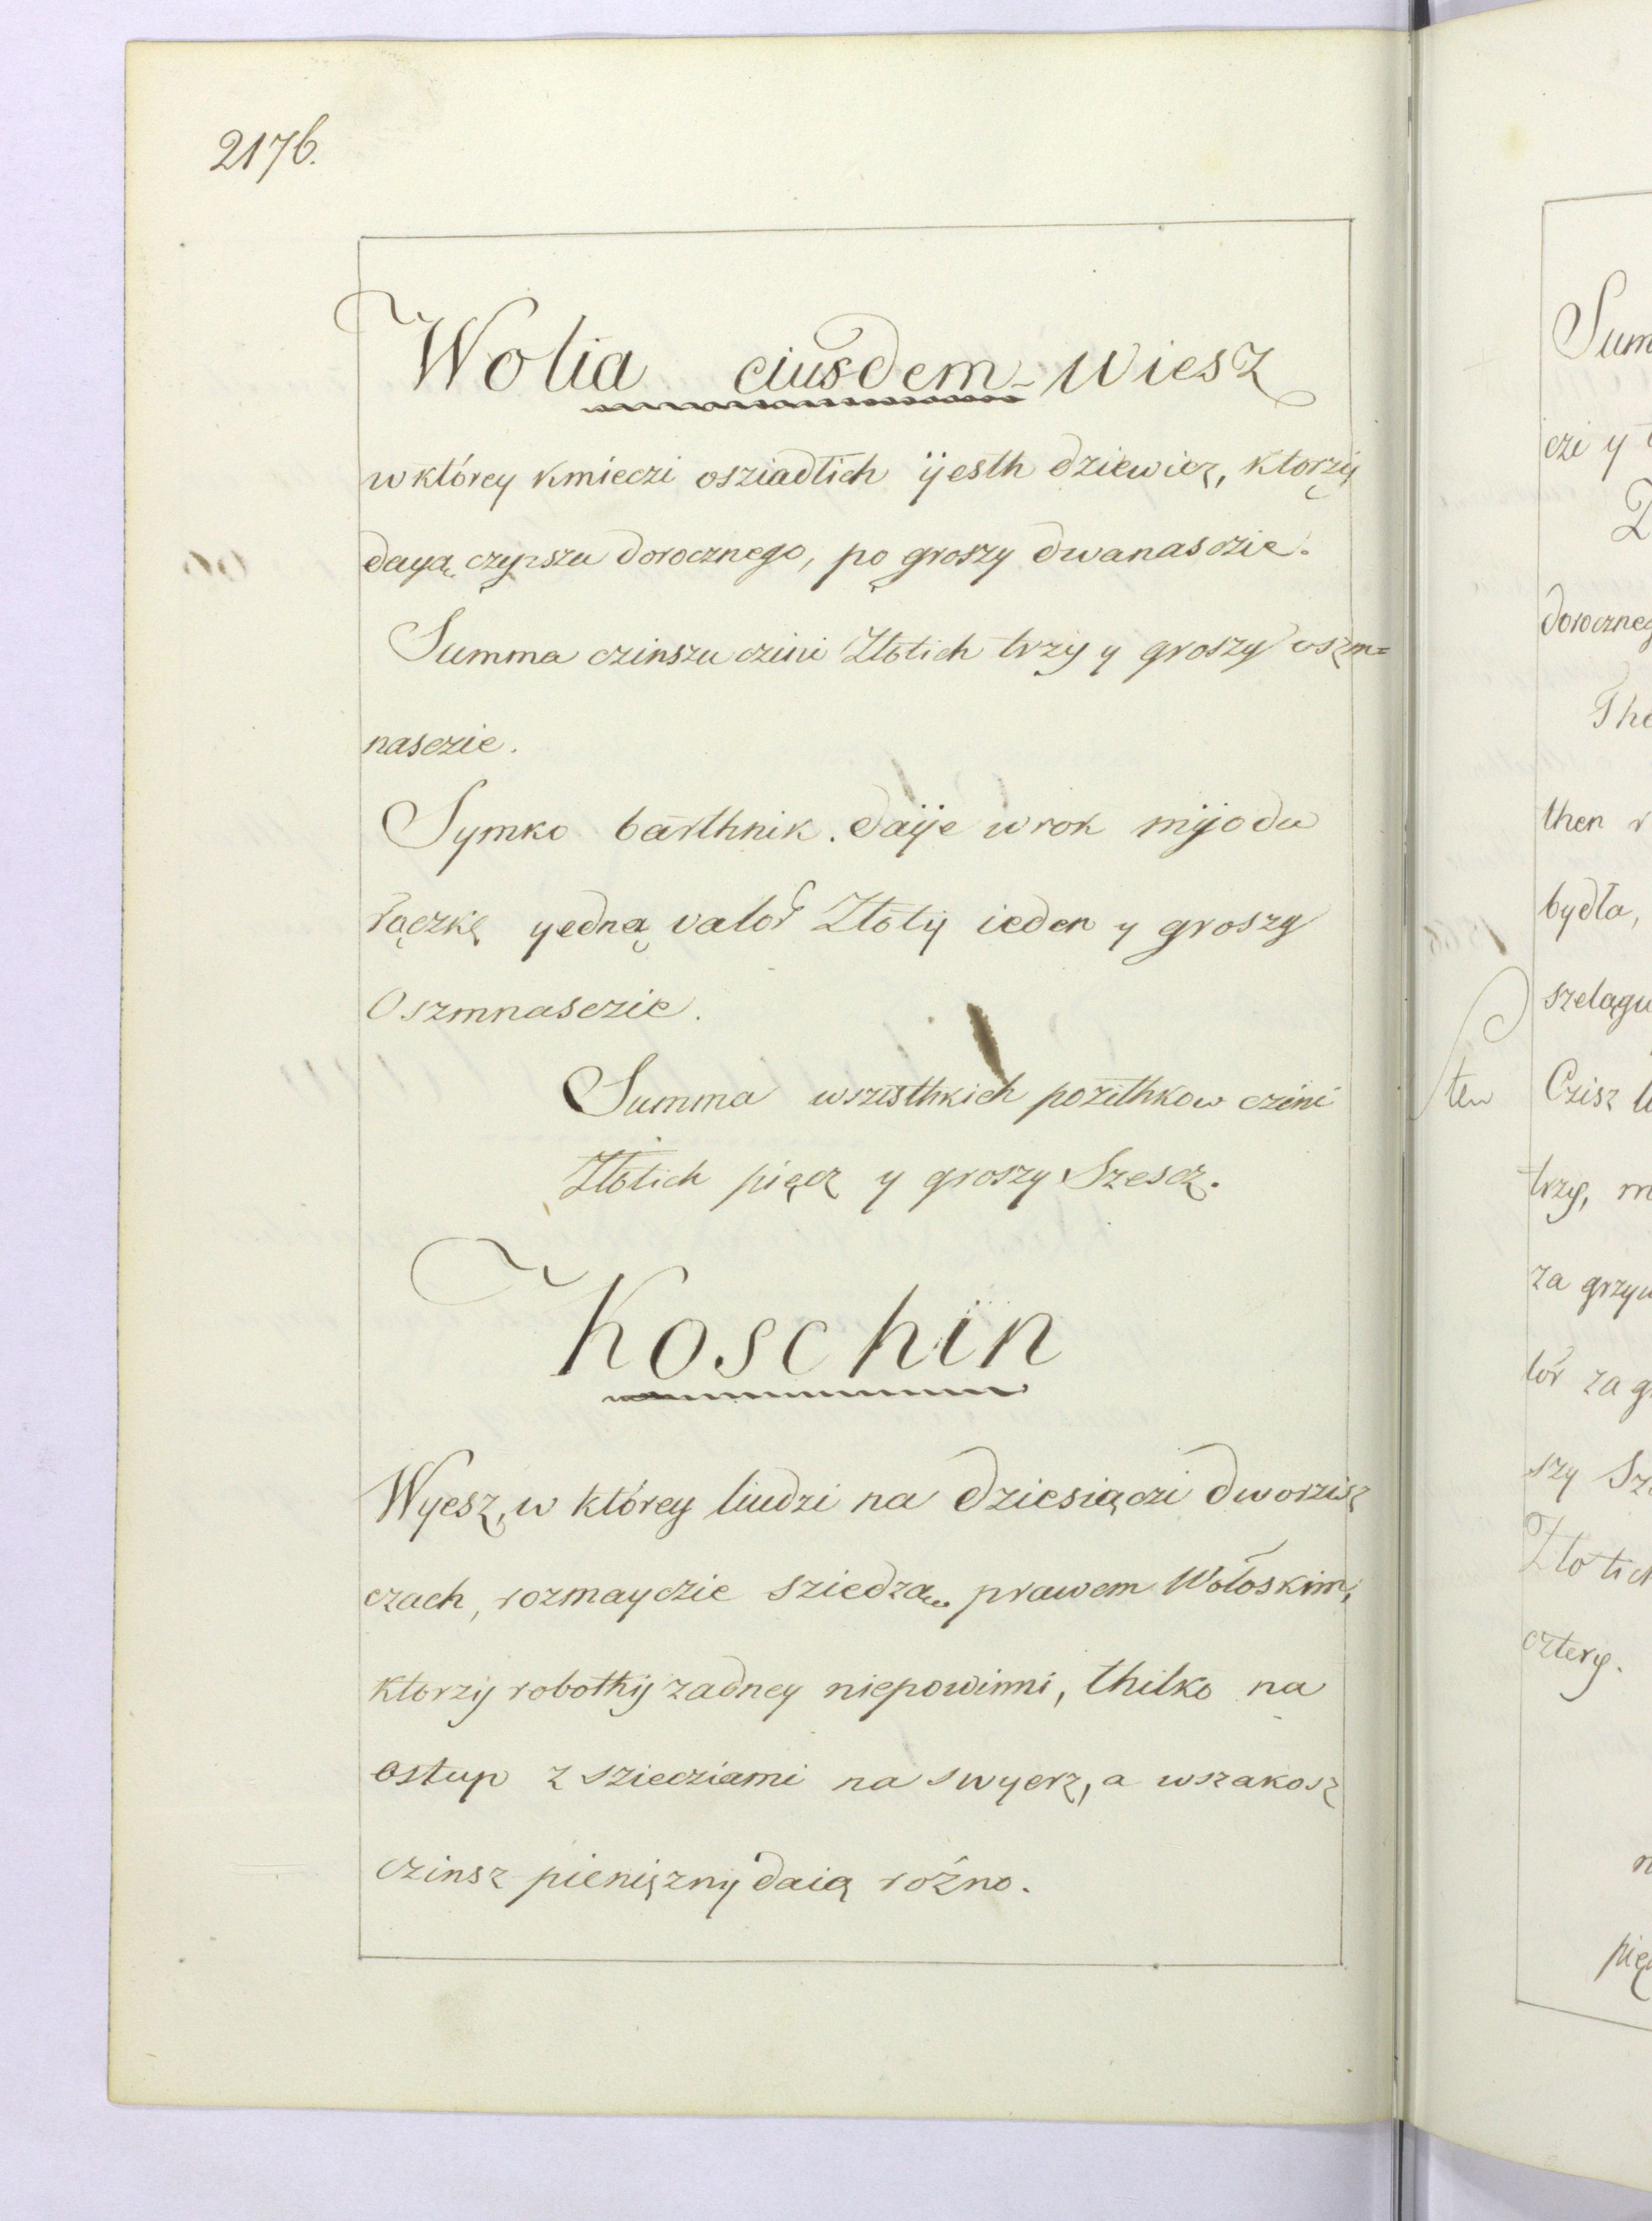 2176.
Wolia eiusdem - wiesz
w którey kmieczi osziadlich ÿesth dziewięz, ktorzÿ
dayą czynszu dorocznego, po groszy dwanasczie.
Summa czinszu czini Złotich trzy y groszy oszm=
nasczie.
Symko barthnik. daÿe w rok mÿodu
rączkę yedną valor Złotÿ ieden y groszy
Oszmnasczie.
Summa wszisthkich pozithkow czini
Złotich pięcz y groszy Szescz.
Koschin
Wyesz, w którey liudzi na dziesiączi dworzisz
czach, rozmayczie sziedzą prawem Wołoskim,
ktorzÿ robothÿ zadney niepowinni, thilko na
ostup z sziecziami na swyerz, a wszakosz
czinsz pieniężnÿ daią różno.
Sum
czi y
doroczneg
The
then
bydła,
szelągu
ten Czisz
trzy, m
za grzyw
lor za g
szy Sz
Złotich
cztery.
pię